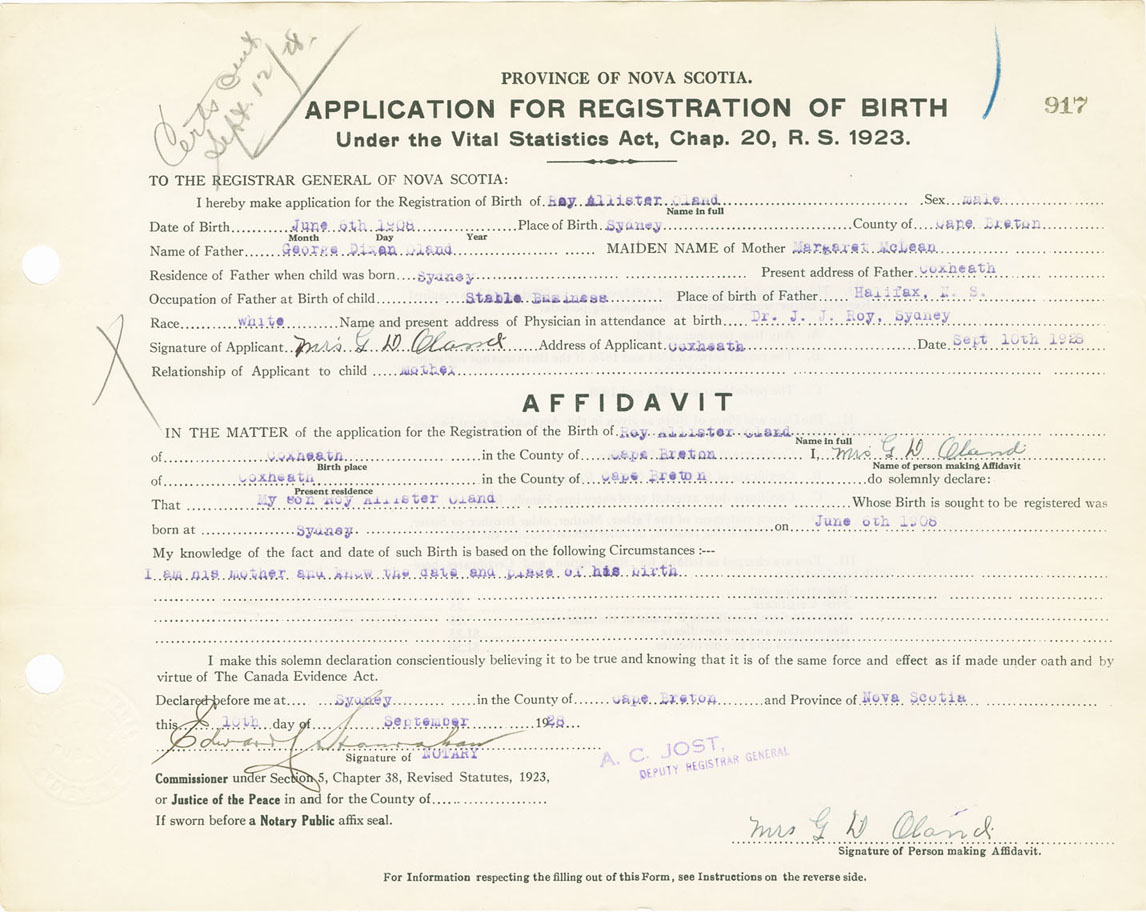 Certs Sent
Sept. 12/28.
PROVINCE OF NOVA SCOTIA.
APPLICATION FOR REGISTRATION OF BIRTH
917
Under the Vital Statistics Act, Chap. 20, R. S. 1923.
TO THE REGISTRAR GENERAL OF NOVA SCOTIA:
I hereby make application for the Registration of Birth of Roy Allister Oland Sex male
Name in full
Date of Birth June 6th 1908 Place of Birth Sydney County of Cape Breton
Month Day Year
Name of Father George Dixon Oland MAIDEN NAME of Mother Margaret McLean
Residence of Father when child was born Sydney Present address of Father Coxheath
Occupation of Father at Birth of child Stable Business Place of birth of Father Halifax, N. S.
Race White Name and present address of Physician in attendance at birth Dr. J. J. Roy, Sydney
Signature of Applicant Mrs G D Oland Address of Applicant Coxheath Date Sept 10th 1928
Relationship of Applicant to child mother
AFFIDAVIT
IN THE MATTER of the application for the Registration of the Birth of Roy Allister Oland
Name in full
of Coxheath in the County of Cape Breton I, Mrs G D Oland
Birth place Name of person making Affidavit
of Coxheath in the County of Cape Breton do solemnly declare:
Present residence
That My son Roy Allister Oland Whose Birth is sought to be registered was
born at Sydney on June 6th 1908
My knowledge of the fact and date of such Birth is based on the following Circumstances :---
I am his mother and know the date and place of his birth
I make this solemn declaration conscientiously believing it to be true and knowing that it is of the same force and effect as if made under oath and by
virtue of The Canada Evidence Act.
Declared before me at Sydney in the County of Cape Breton and Province of Nova Scotia
this 10th day of September 1928
Edward
Signature of NOTARY
A. C. JOST,
DEPUTY REGISTRAR GENERAL
Commissioner under Section 5, Chapter 38, Revised Statutes, 1923,
or Justice of the Peace in and for the County of
If sworn before a Notary Public affix seal.
Mrs G D Oland
Signature of Person making Affidavit.
For Information respecting the filling out of this Form, see Instructions on the reverse side.